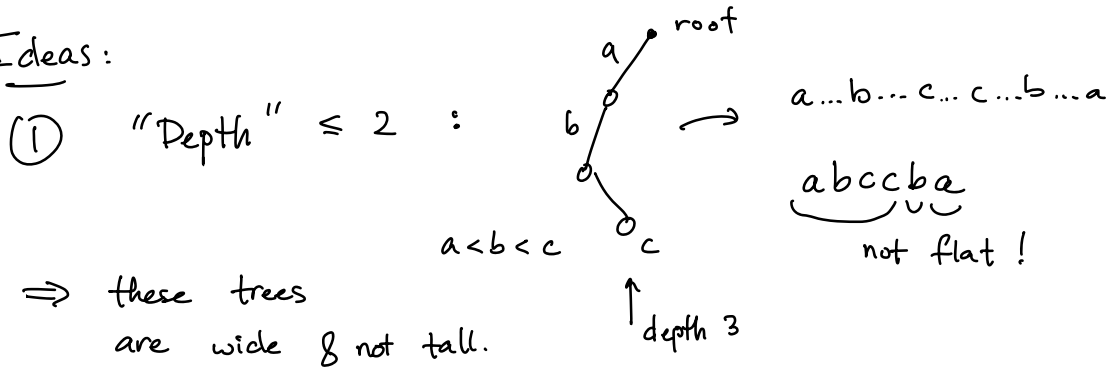 Ideas:
① "Depth" ≤ 2 :
root
a
b
c
a < b < c
depth 3
→ a...b...c...c...b...a
abccba
not flat !
⇒ these trees
are wide & not tall.